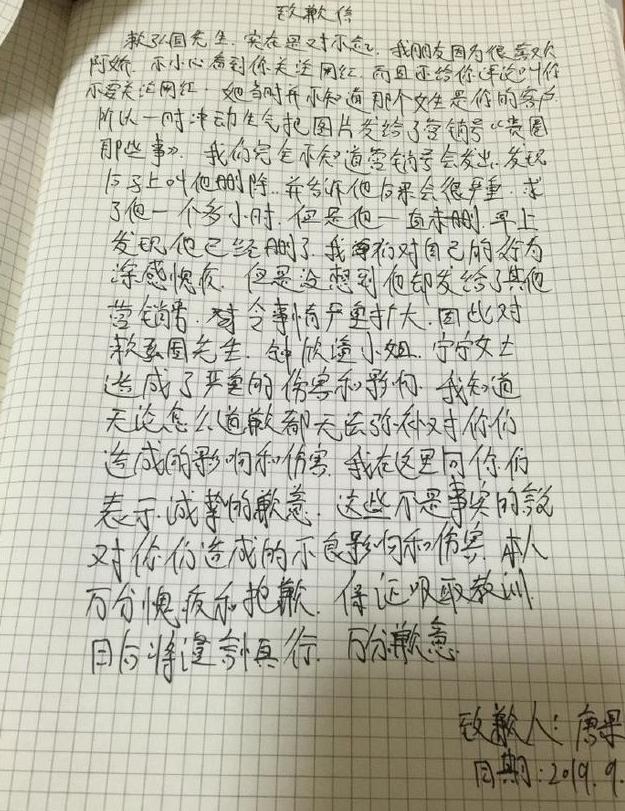 致歉信
赖弘国先生.实在是对不起.我朋友因为很喜欢
阿娇.不小心看到你关注网红.而且还给你评论叫你
不要关注网红.她当时并不知道那个女生是你的客户.
所以一时冲动生气把图片发给了营销号《贵圈
那些事》.我们完全不知道营销号会发出.发现
后马上叫他删除.并告诉他后果会很严重.求
了他一个多小时.但是他一直未删.早上
发现他已经删了.我们对自己的行为
深感愧疚.但是没想到他却发给了其他
营销号.令事情严重扩大.因此对
赖弘国先生.钟欣潼小姐.宁宁女士
造成了严重的伤害和影响.我知道
无论怎么道歉都无法弥补对你们
造成的影响和伤害.我在这里向你们
表示诚挚的歉意.这些不是事实的
对你们造成的不良影响和伤害.本人
万分愧疚和抱歉.保证吸取教训.
日后将谨言慎行.万分歉意.
致歉人:唐果
日期:2019.9.